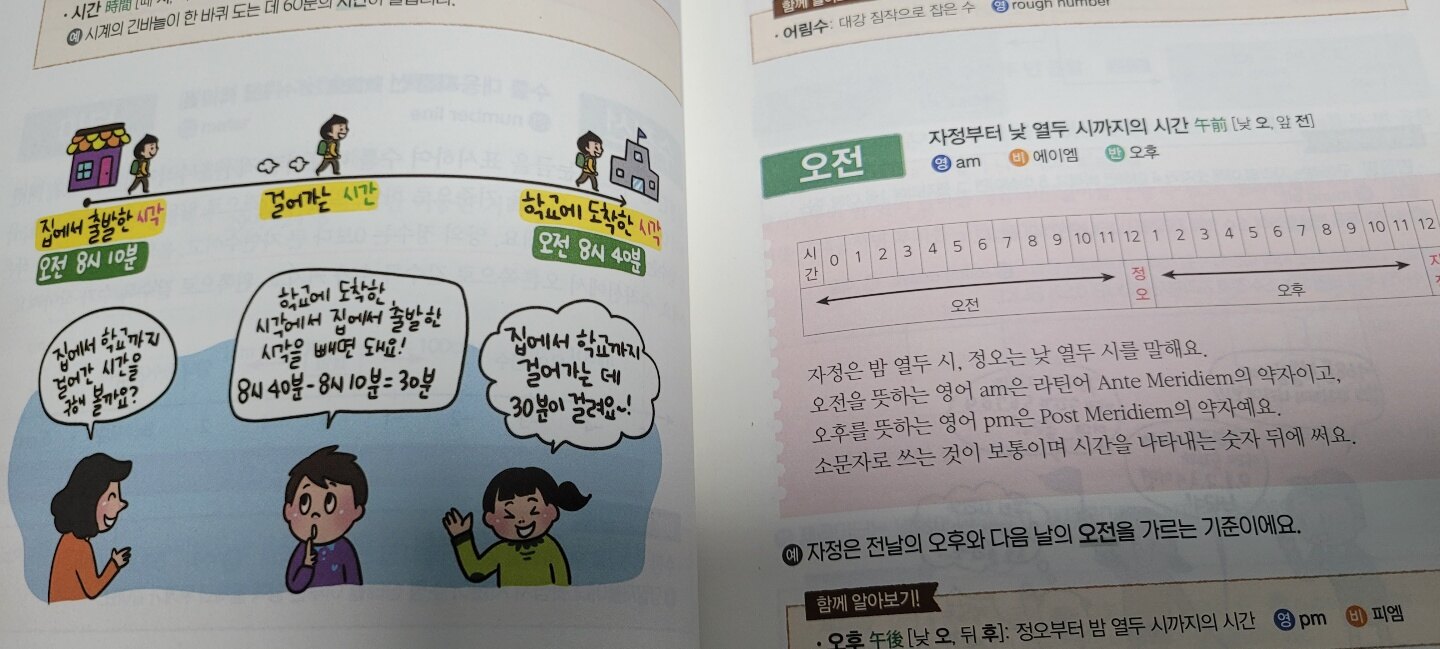 · 시간 時間
예 시계의 긴바늘이 한 바퀴 도는 데 60분의 시간이 걸립니다.
집에서 출발한 시각
오전 8시 10분
걸어가는 시간
학교에 도착한 시각
오전 8시 40분
집에서 학교까지
걸어간 시간을
구해 볼까요?
학교에 도착한
시각에서 집에서 출발한
시각을 빼면 돼요!
8시 40분-8시 10분=30분
집에서 학교까지
걸어가는 데
30분이 걸려요~!
함께 알아보기!
· 어림수: 대강 짐작으로 잡은 수 영 rough number
오전
자정부터 낮 열두 시까지의 시간 午前 [낮 오, 앞 전]
영 am 비 에이엠 반 오후
시간 0 1 2 3 4 5 6 7 8 9 10 11 12 1 2 3 4 5 6 7 8 9 10 11 12
오전 정오 오후
자정은 밤 열두 시, 정오는 낮 열두 시를 말해요.
오전을 뜻하는 영어 am은 라틴어 Ante Meridiem의 약자이고,
오후를 뜻하는 영어 pm은 Post Meridiem의 약자예요.
소문자로 쓰는 것이 보통이며 시간을 나타내는 숫자 뒤에 써요.
예 자정은 전날의 오후와 다음 날의 오전을 가르는 기준이에요.
함께 알아보기!
· 오후 午後 [낮 오, 뒤 후]: 정오부터 밤 열두 시까지의 시간 영 pm 비 피엠